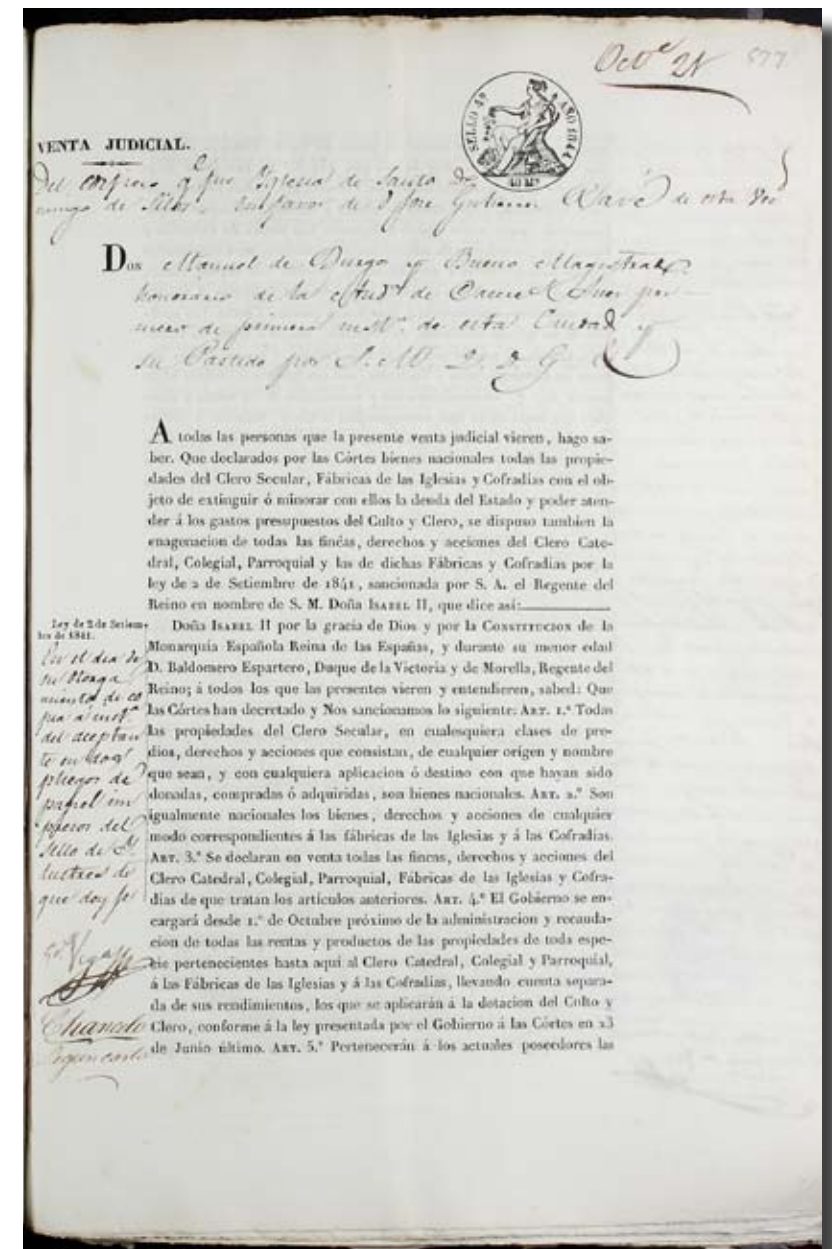 Oct.e 21 577
SELLO 4º AÑO 1844
40 Ms.
VENTA JUDICIAL.
Del que fue Yglesia de Santo Do
mingo de Silos. en favor de D. José de esta
Don Manuel de Burgo y Bueno Magistrado
honorario de la de Juez pri
mero de primera inst.ª de esta Ciudad y
su Partido por S. M. Q. D. G.
A todas las personas que la presente venta judicial vieren, hago sa-
ber. Que declarados por las Córtes bienes nacionales todas las propie-
dades del Clero Secular, Fábricas de las Iglesias y Cofradías con el ob-
jeto de extinguir ó minorar con ellos la deuda del Estado y poder aten-
der á los gastos presupuestos del Culto y Clero, se dispuso tambien la
enagenacion de todas las fincas, derechos y acciones del Clero Cate-
dral, Colegial, Parroquial y las de dichas Fábricas y Cofradías por la
ley de 2 de Setiembre de 1841, sancionada por S. A. el Regente del
Reino en nombre de S. M. Doña Isabel II, que dice así:
Ley de 2 de Setiem-
bre de 1841.
Doña Isabel II por la gracia de Dios y por la Constitucion de la
Monarquía Española Reina de las Españas, y durante su menor edad
D. Baldomero Espartero, Duque de la Victoria y de Morella, Regente del
Reino; á todos los que las presentes vieren y entendieren, sabed: Que
las Córtes han decretado y Nos sancionamos lo siguiente: Art. 1.º Todas
las propiedades del Clero Secular, en cualesquiera clases de pre-
dios, derechos y acciones que consistan, de cualquier origen y nombre
que sean, y con cualquiera aplicacion ó destino con que hayan sido
donadas, compradas ó adquiridas, son bienes nacionales. Art. 2.º Son
igualmente nacionales los bienes, derechos y acciones de cualquier
modo correspondientes á las fábricas de las Iglesias y á las Cofradías.
Art. 3.º Se declaran en venta todas las fincas, derechos y acciones del
Clero Catedral, Colegial, Parroquial, Fábricas de las Iglesias y Cofra-
días de que tratan los artículos anteriores. Art. 4.º El Gobierno se en-
cargará desde 1.º de Octubre próximo de la administracion y recauda-
cion de todas las rentas y productos de las propiedades de toda espe-
cie pertenecientes hasta aquí al Clero Catedral, Colegial y Parroquial,
á las Fábricas de las Iglesias y á las Cofradías, llevando cuenta separa-
da de sus rendimientos, los que se aplicarán á la dotacion del Culto y
Clero, conforme á la ley presentada por el Gobierno á las Córtes en 23
de Junio último. Art. 5.º Pertenecerán á los actuales poseedores las
En el dia de
su otorga
miento di co
pia á inst.ª
del aceptan
te en dos
pliegos de
papel im
presos del
Sello de
Ilustres de
que doy fe